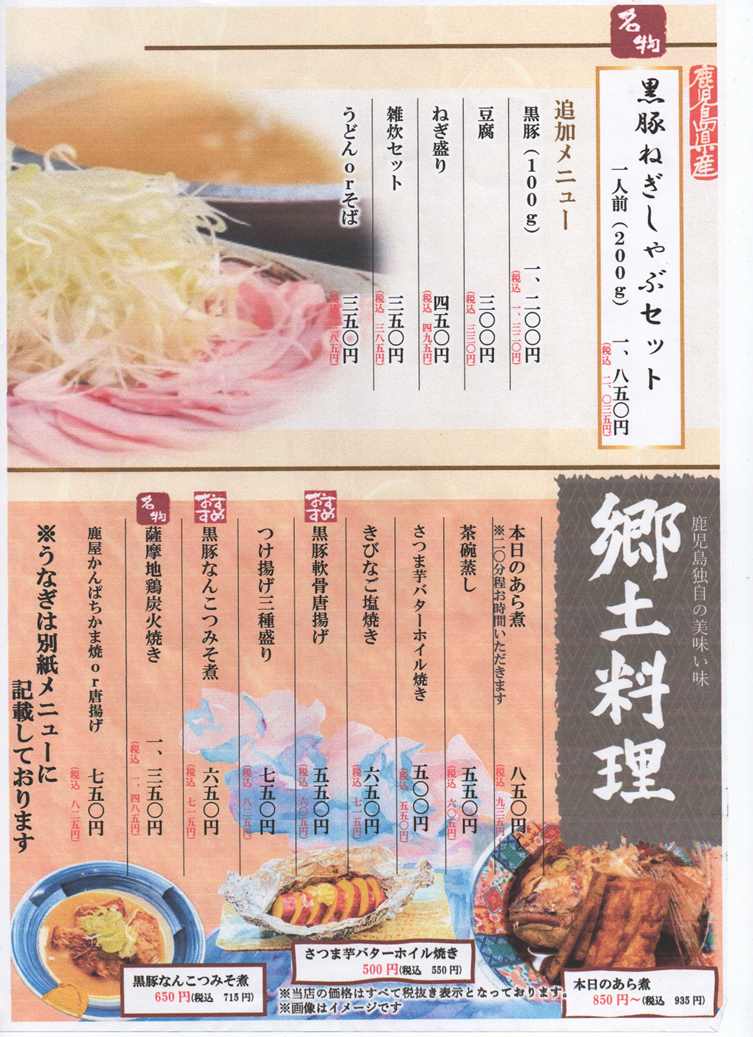 名物
鹿児島県産
黒豚ねぎしゃぶセット
一人前(200g) 一、八五〇円
(税込 二、〇三五円)
追加メニュー
黒豚(100g) 一、二〇〇円
(税込 一、三二〇円)
豆腐 三〇〇円
(税込 三三〇円)
ねぎ盛り 四五〇円
(税込 四九五円)
雑炊セット 三五〇円
(税込 三八五円)
うどんorそば 三五〇円
(税込 三八五円)
鹿児島独自の美味い味
郷土料理
本日のあら煮 八五〇円
※二〇分程お時間いただきます
(税込 九三五円)
茶碗蒸し 五五〇円
(税込 六〇五円)
さつま芋バターホイル焼き 五〇〇円
(税込 五五〇円)
きびなご塩焼き 六五〇円
(税込 七一五円)
おすすめ
黒豚軟骨唐揚げ 五五〇円
(税込 六〇五円)
つけ揚げ三種盛り 七五〇円
(税込 八二五円)
おすすめ
黒豚なんこつみそ煮 六五〇円
(税込 七一五円)
名物
薩摩地鶏炭火焼き 一、三五〇円
(税込 一、四八五円)
鹿屋かんぱちかま焼or唐揚げ 七五〇円
(税込 八二五円)
※うなぎは別紙メニューに
記載しております
黒豚なんこつみそ煮
650円(税込 715円)
さつま芋バターホイル焼き
500円(税込 550円)
本日のあら煮
850円～(税込 935円)
※当店の価格はすべて税抜き表示となっております。
※画像はイメージです